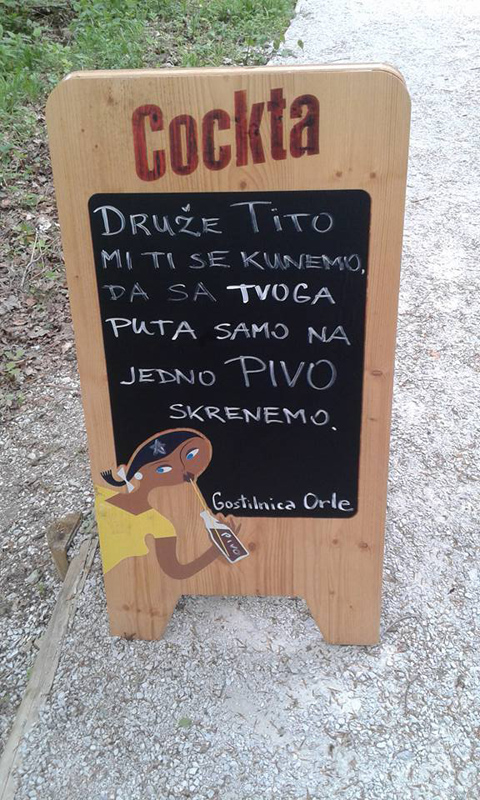 Cockta
DRUŽE TITO
MI TI SE KUNEMO,
DA SA TVOGA
PUTA SAMO NA
JEDNO PIVO
SKRENEMO.
Gostilnica Orle
PIVO